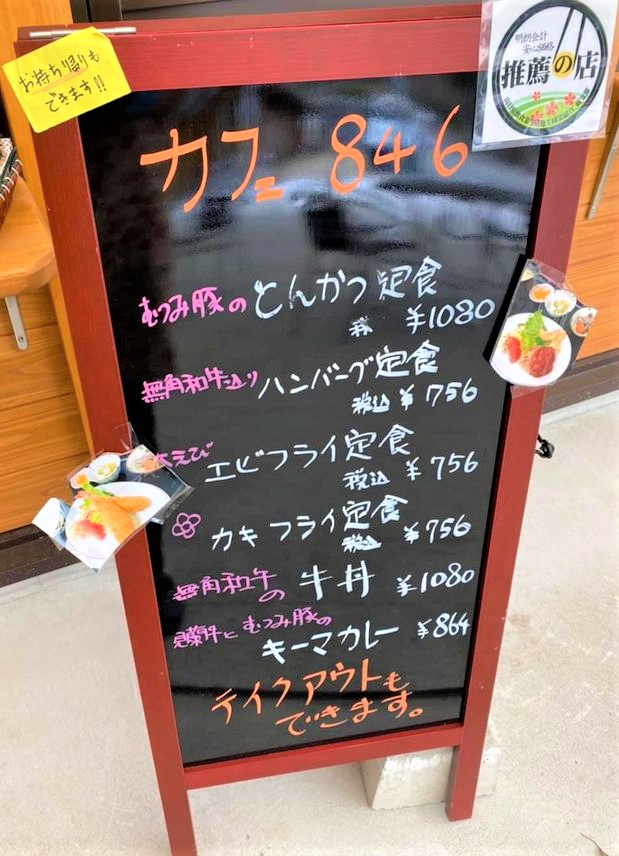 お持ち帰りも
できます!!
明朗会計
安心価格
推薦の店
カフェ 846
むつみ豚の とんかつ定食
税 ¥1080
無角和牛入り ハンバーグ定食
税込 ¥756
大えび エビフライ定食
税込 ¥756
カキフライ定食
税込 ¥756
無角和牛の 牛丼 ¥1080
むつみ豚の
キーマカレー ¥864
テイクアウトも
できます。